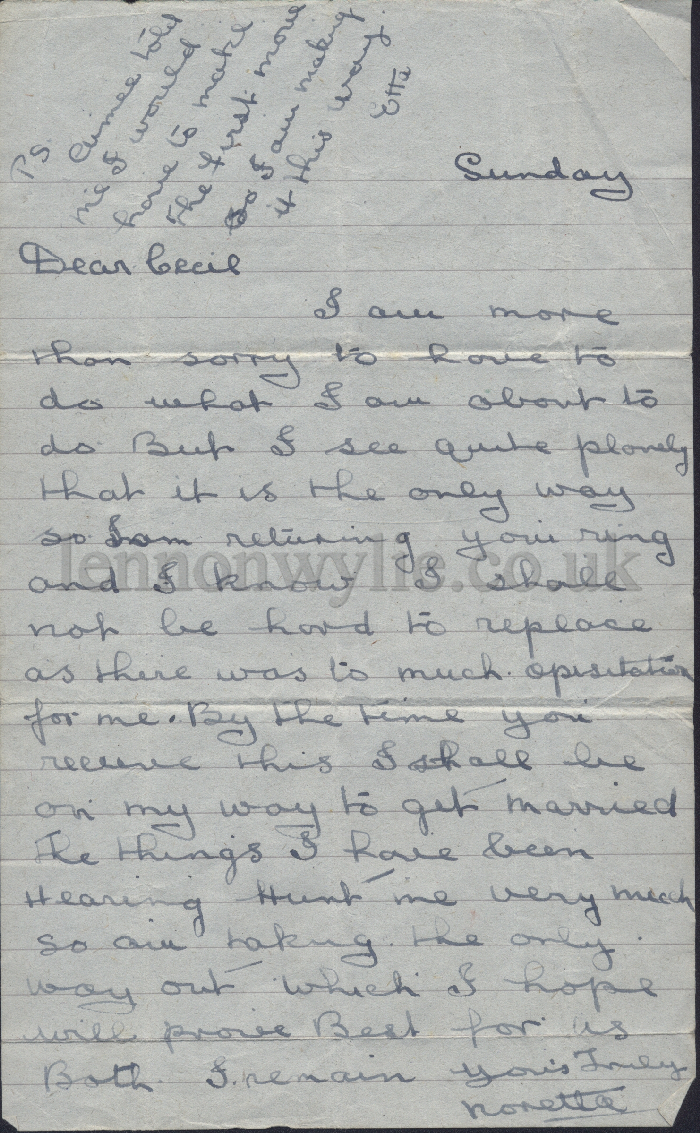 PS
Aimee told
me I would
have to make
the first move
so I am making
it this way.
Etta
Sunday
Dear Cecil
I am more
than sorry to have to
do what I am about to
do But I see quite planely
that it is the only way
so I am returing your ring
and I know I shall
not be hard to replace
as there was to much opisitation
for me. By the time you
receive this I shall be
on my way to get married
The things I have been
Hearing Hunt me very much
so am takug the only
way out which I hope
will prove Best for us
Both I remain yours Truly
noretta
lennonwylie.co.uk